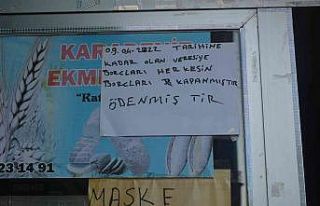 KAR
EKM
"Kat
09.04.2022 TARİHİNE
KADAR OLAN VERESİYE
BORÇLARI HERKESİN
BORÇLARI KAPANMIŞTIR
ÖDENMİŞ TİR
23 14 91
MASKE